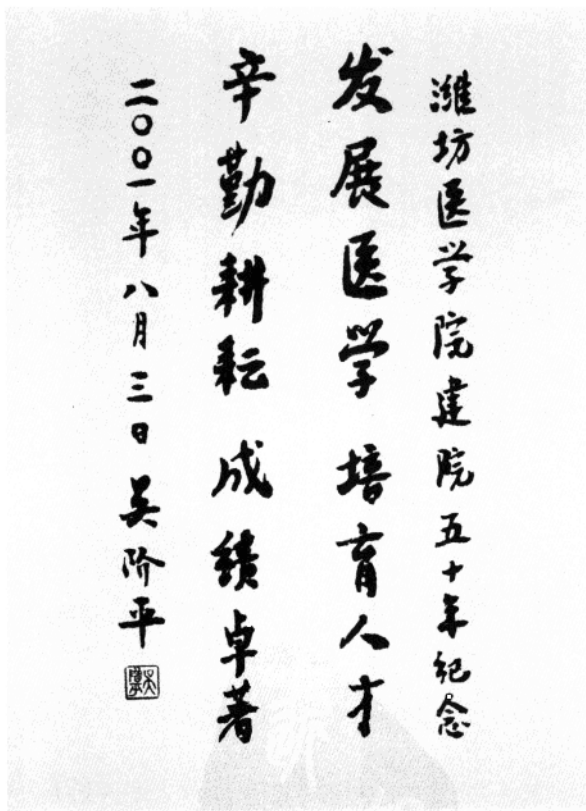 潍坊医学院建院五十年纪念
发展医学 培育人才
辛勤耕耘 成绩卓著
二〇〇一年八月三日 吴阶平